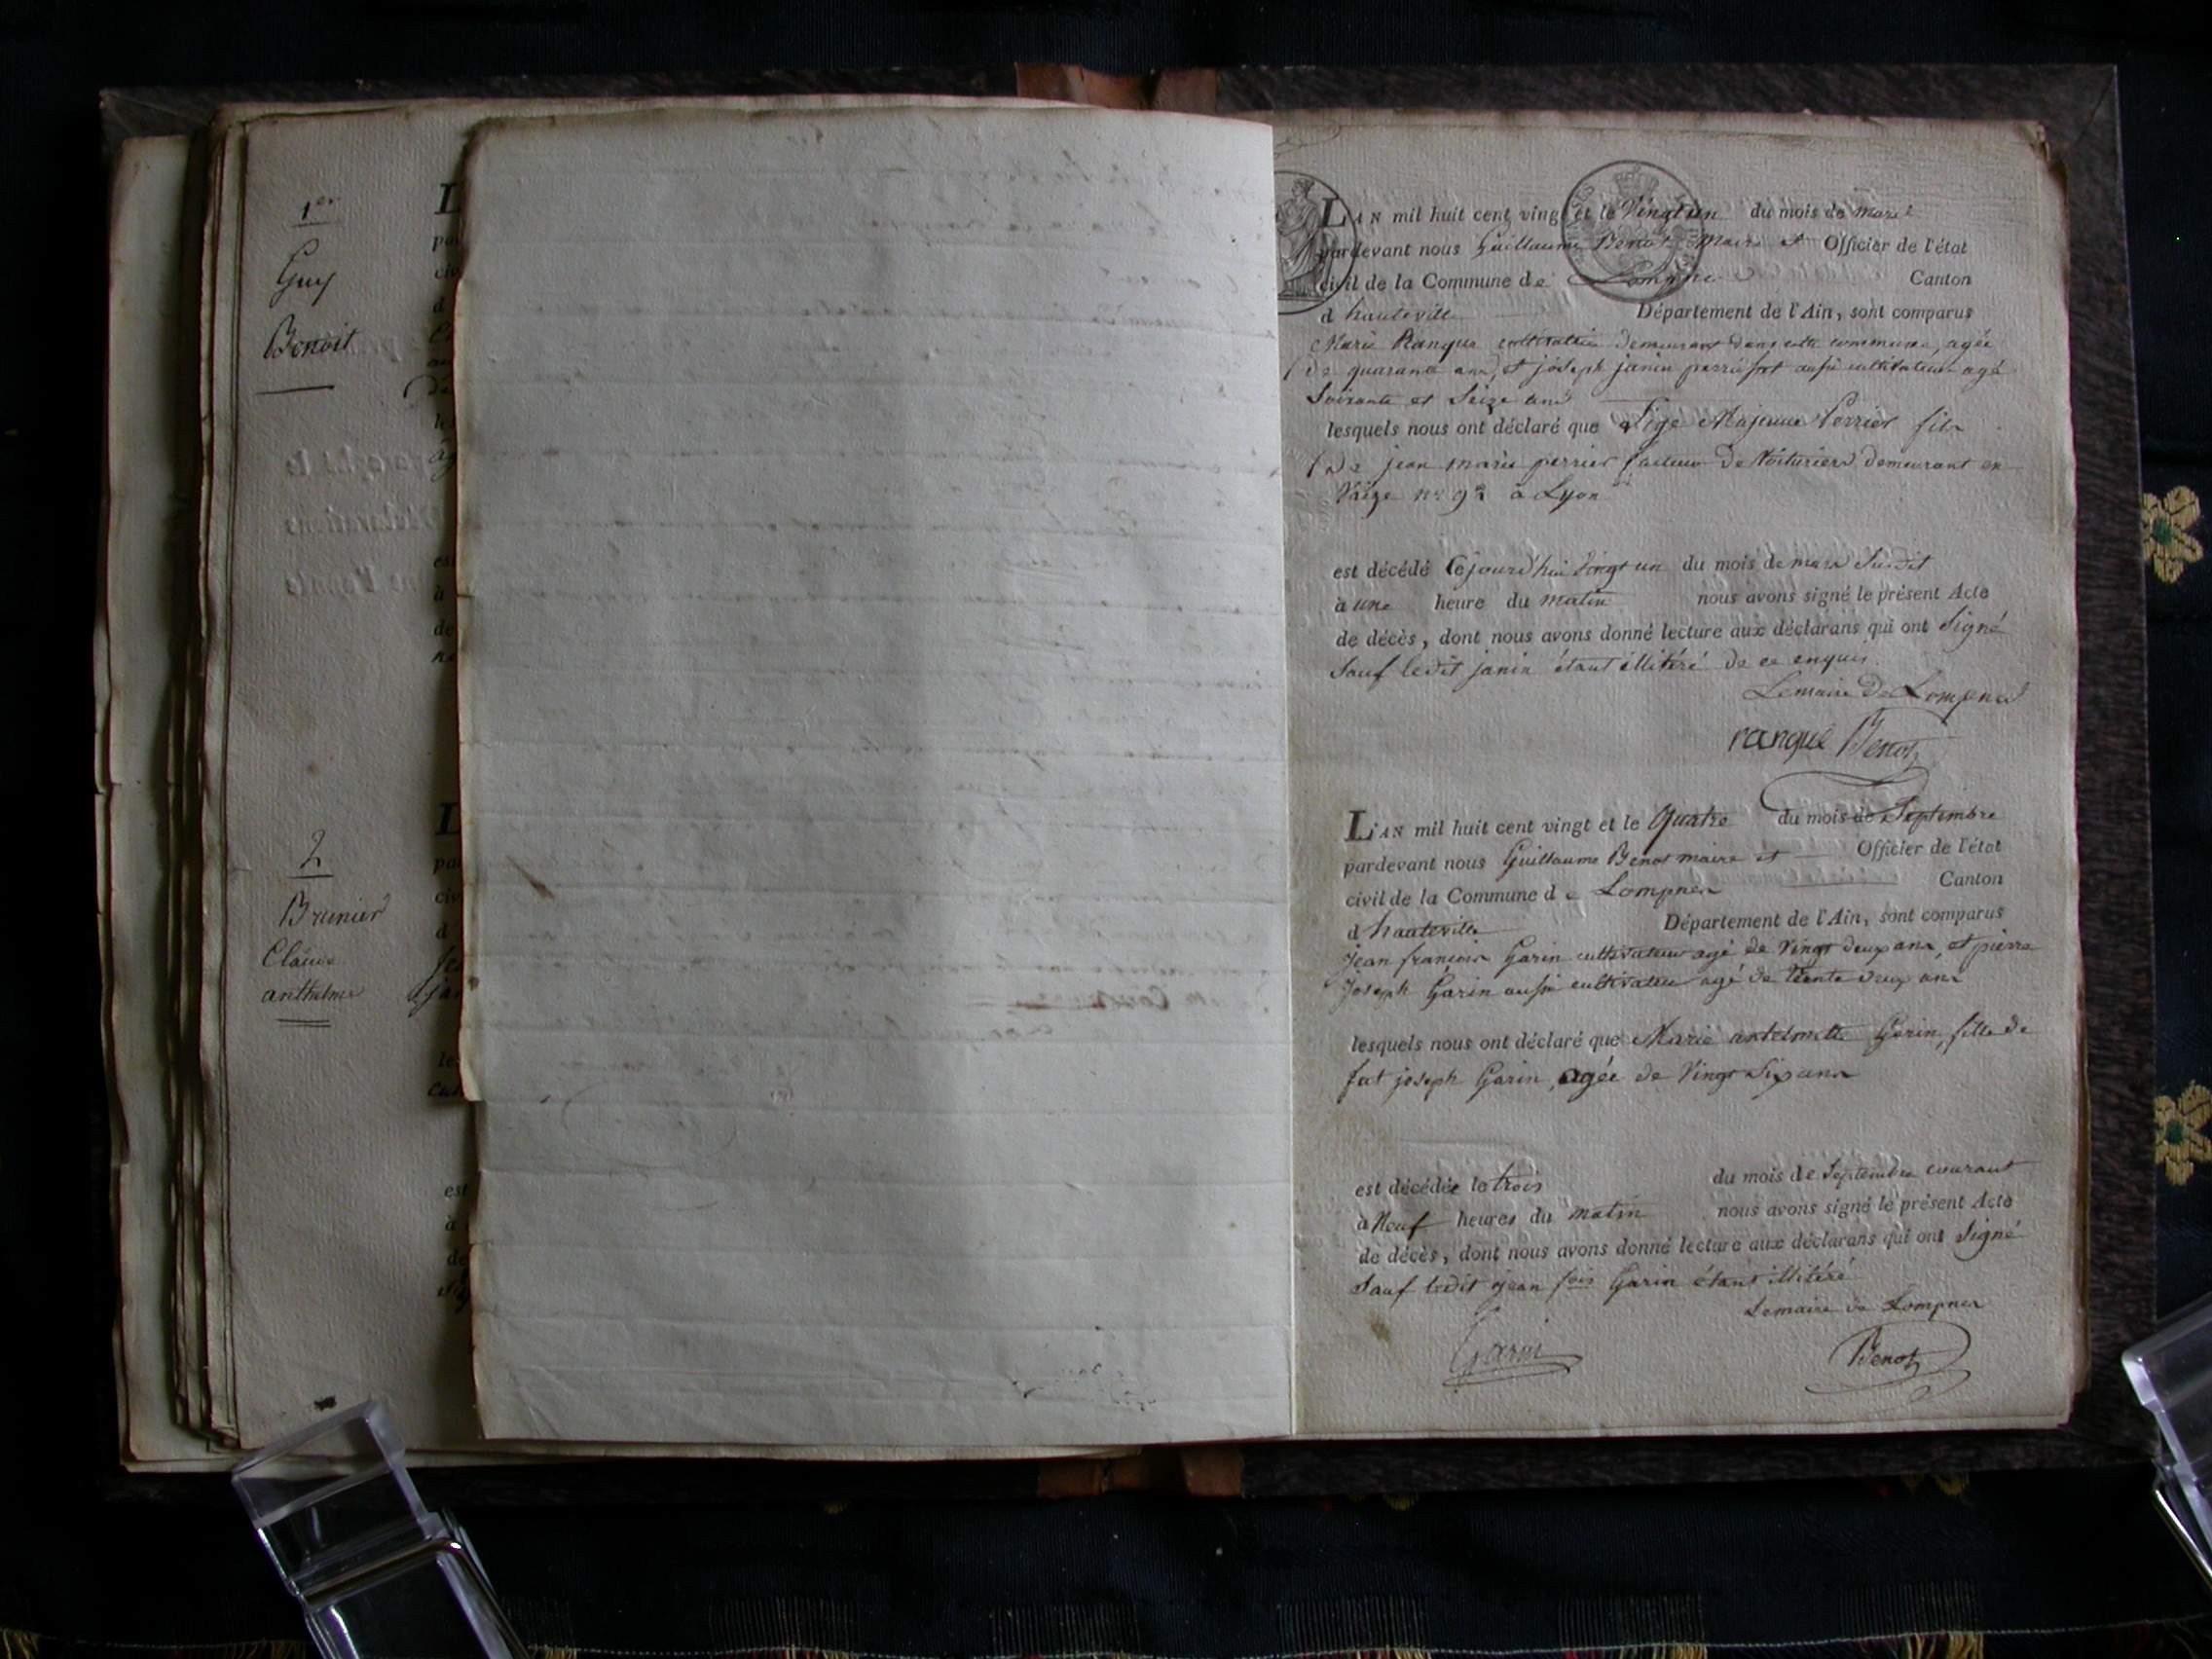 1er
Guy
Benoit
2
Brunier
Claude
anthelme
L'AN mil huit cent vingt et le Vingt un du mois de mars
pardevant nous Guillaume Benot Maire et Officier de l'état
civil de la Commune de Lompnes Canton
d hauteville Département de l'Ain, sont comparus
Marie Ranque cultivateur demeurant dans cette commune, agée
de quarante ans, et joseph janin aussi cultivateur agé
Soixante et Seize ans
lesquels nous ont déclaré que Perrier fils
de jean marie perrier facteur de Voituriers demeurant en
Vaize n° à Lyon
est décédé Cejourd'hui Vingt un du mois de mars Susdit
à une heure du matin nous avons signé le présent Acte
de décès, dont nous avons donné lecture aux déclarans qui ont Signé
Sauf ledit janin étant illitéré de ce enquis
Lemaire de Lompnes
ranque Benot
L'AN mil huit cent vingt et le Quatre du mois de Septembre
pardevant nous Guillaume Benot maire et Officier de l'état
civil de la Commune d e Lompnes Canton
d hauteville Département de l'Ain, sont comparus
jean francois Garin cultivateur agé de Vingt deux ans, et pierre
Joseph Garin aussi cultivateur agé de trente deux ans
lesquels nous ont déclaré que Marie antelmette Garin, fille de
fut joseph Garin, agée de Vingt Six ans
est décédée le trois du mois de Septembre courant
à Neuf heures du matin nous avons signé le présent Acte
de décès, dont nous avons donné lecture aux déclarans qui ont Signé
Sauf ledit jean fois Garin étant illitéré
Lemaire de Lompnes
Garin Benot